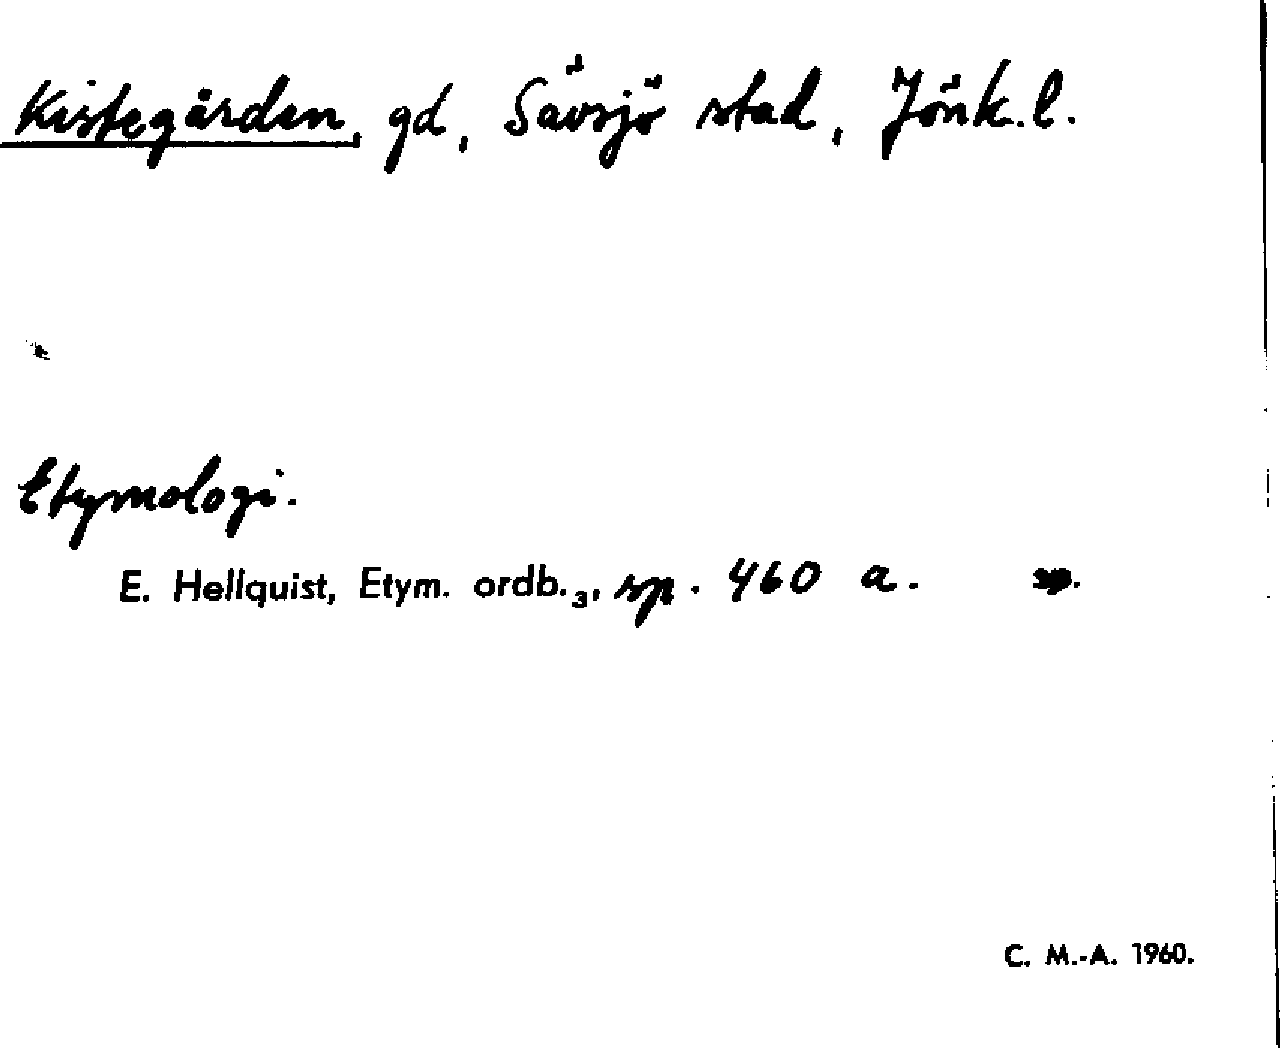 Kistegården, gd, Sävsjö stad, Jönk.l.
Etymologi.
E. Hellquist, Etym. ordb.₃, sp. 460 a. sp.
C. M.-A. 1960.